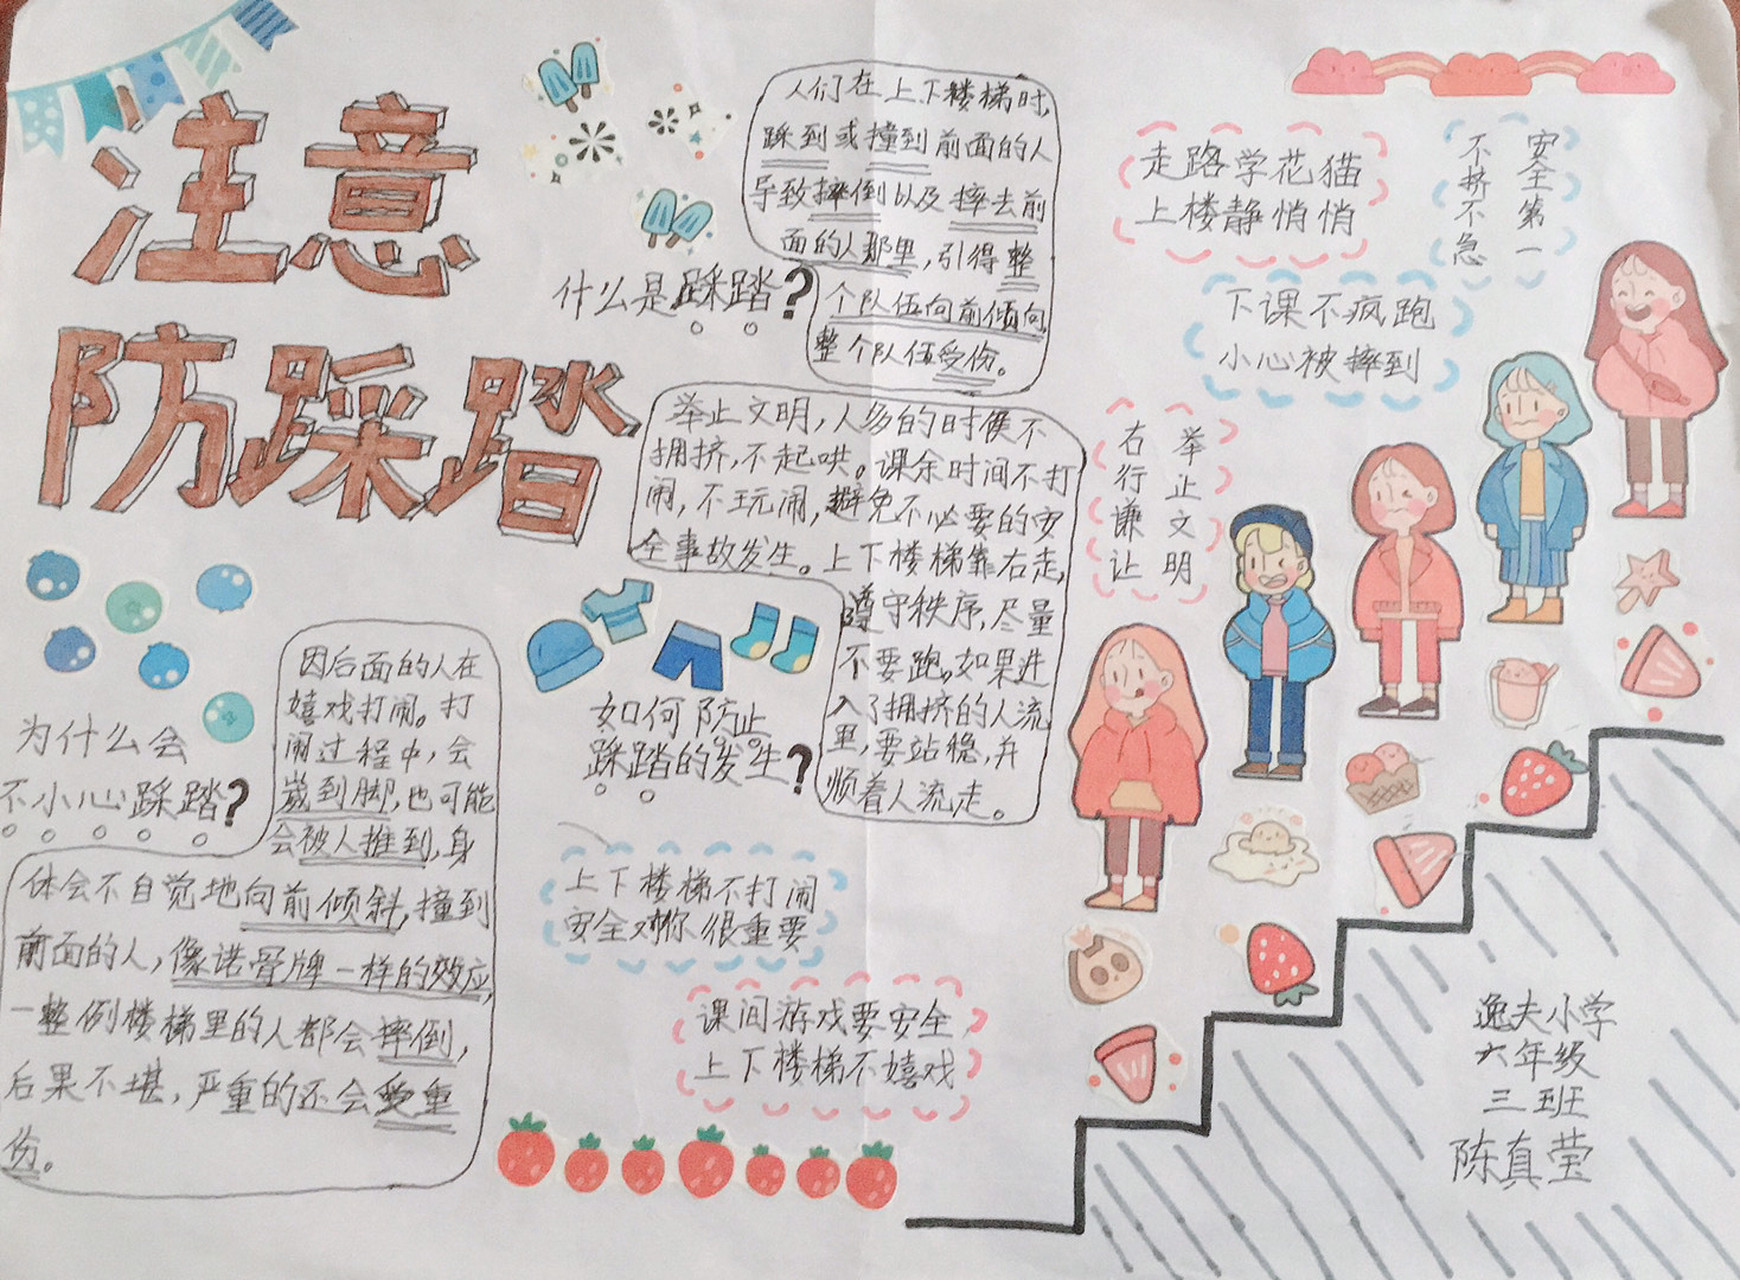 注意
防踩踏
什么是踩踏?
人们在上下楼梯时,
踩到或撞到前面的人
导致摔倒以及摔去前
面的人那里,引得整
个队伍向前倾向,
整个队伍受伤。
为什么会
不小心踩踏?
因后面的人在
嬉戏打闹。打
闹过程中,会
崴到脚,也可能
会被人推到,身
体会不自觉地向前倾斜,撞到
前面的人,像诺骨牌一样的效应,
一整例楼梯里的人都会摔倒,
后果不堪,严重的还会受重
伤。
如何防止
踩踏的发生?
举止文明,人多的时候不
拥挤,不起哄。课余时间不打
闹,不玩闹,避免不必要的安
全事故发生。上下楼梯靠右走,
遵守秩序,尽量
不要跑。如果进
入了拥挤的人流
里,要站稳,并
顺着人流走。
上下楼梯不打闹
安全对你很重要
课间游戏要安全,
上下楼梯不嬉戏
走路学花猫
上楼静悄悄
安全第一
不挤不急
下课不疯跑
小心被摔到
举止文明
右行谦让
逸夫小学
六年级
三班
陈真莹